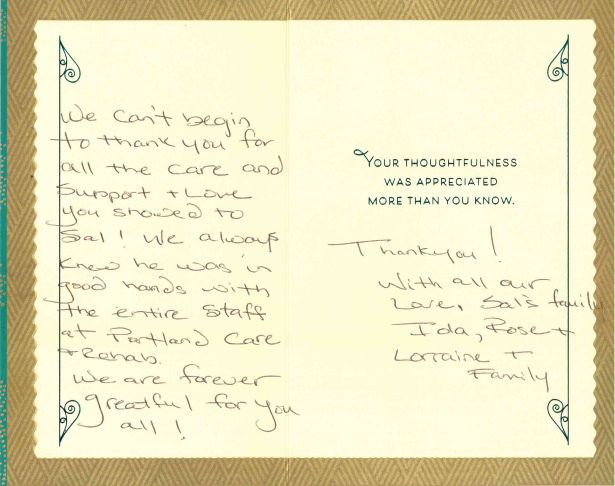 We can't begin
to thank you for
all the care and
Support + Love
you showed to
Sal! We always
knew he was in
good hands with
the entire Staff
at Portland Care
+ Rehab.
We are forever
greatful for you
all!
YOUR THOUGHTFULNESS
WAS APPRECIATED
MORE THAN YOU KNOW.
Thankyou!
With all our
Love, Sal's family
Ida, Rose +
Lorraine +
Family